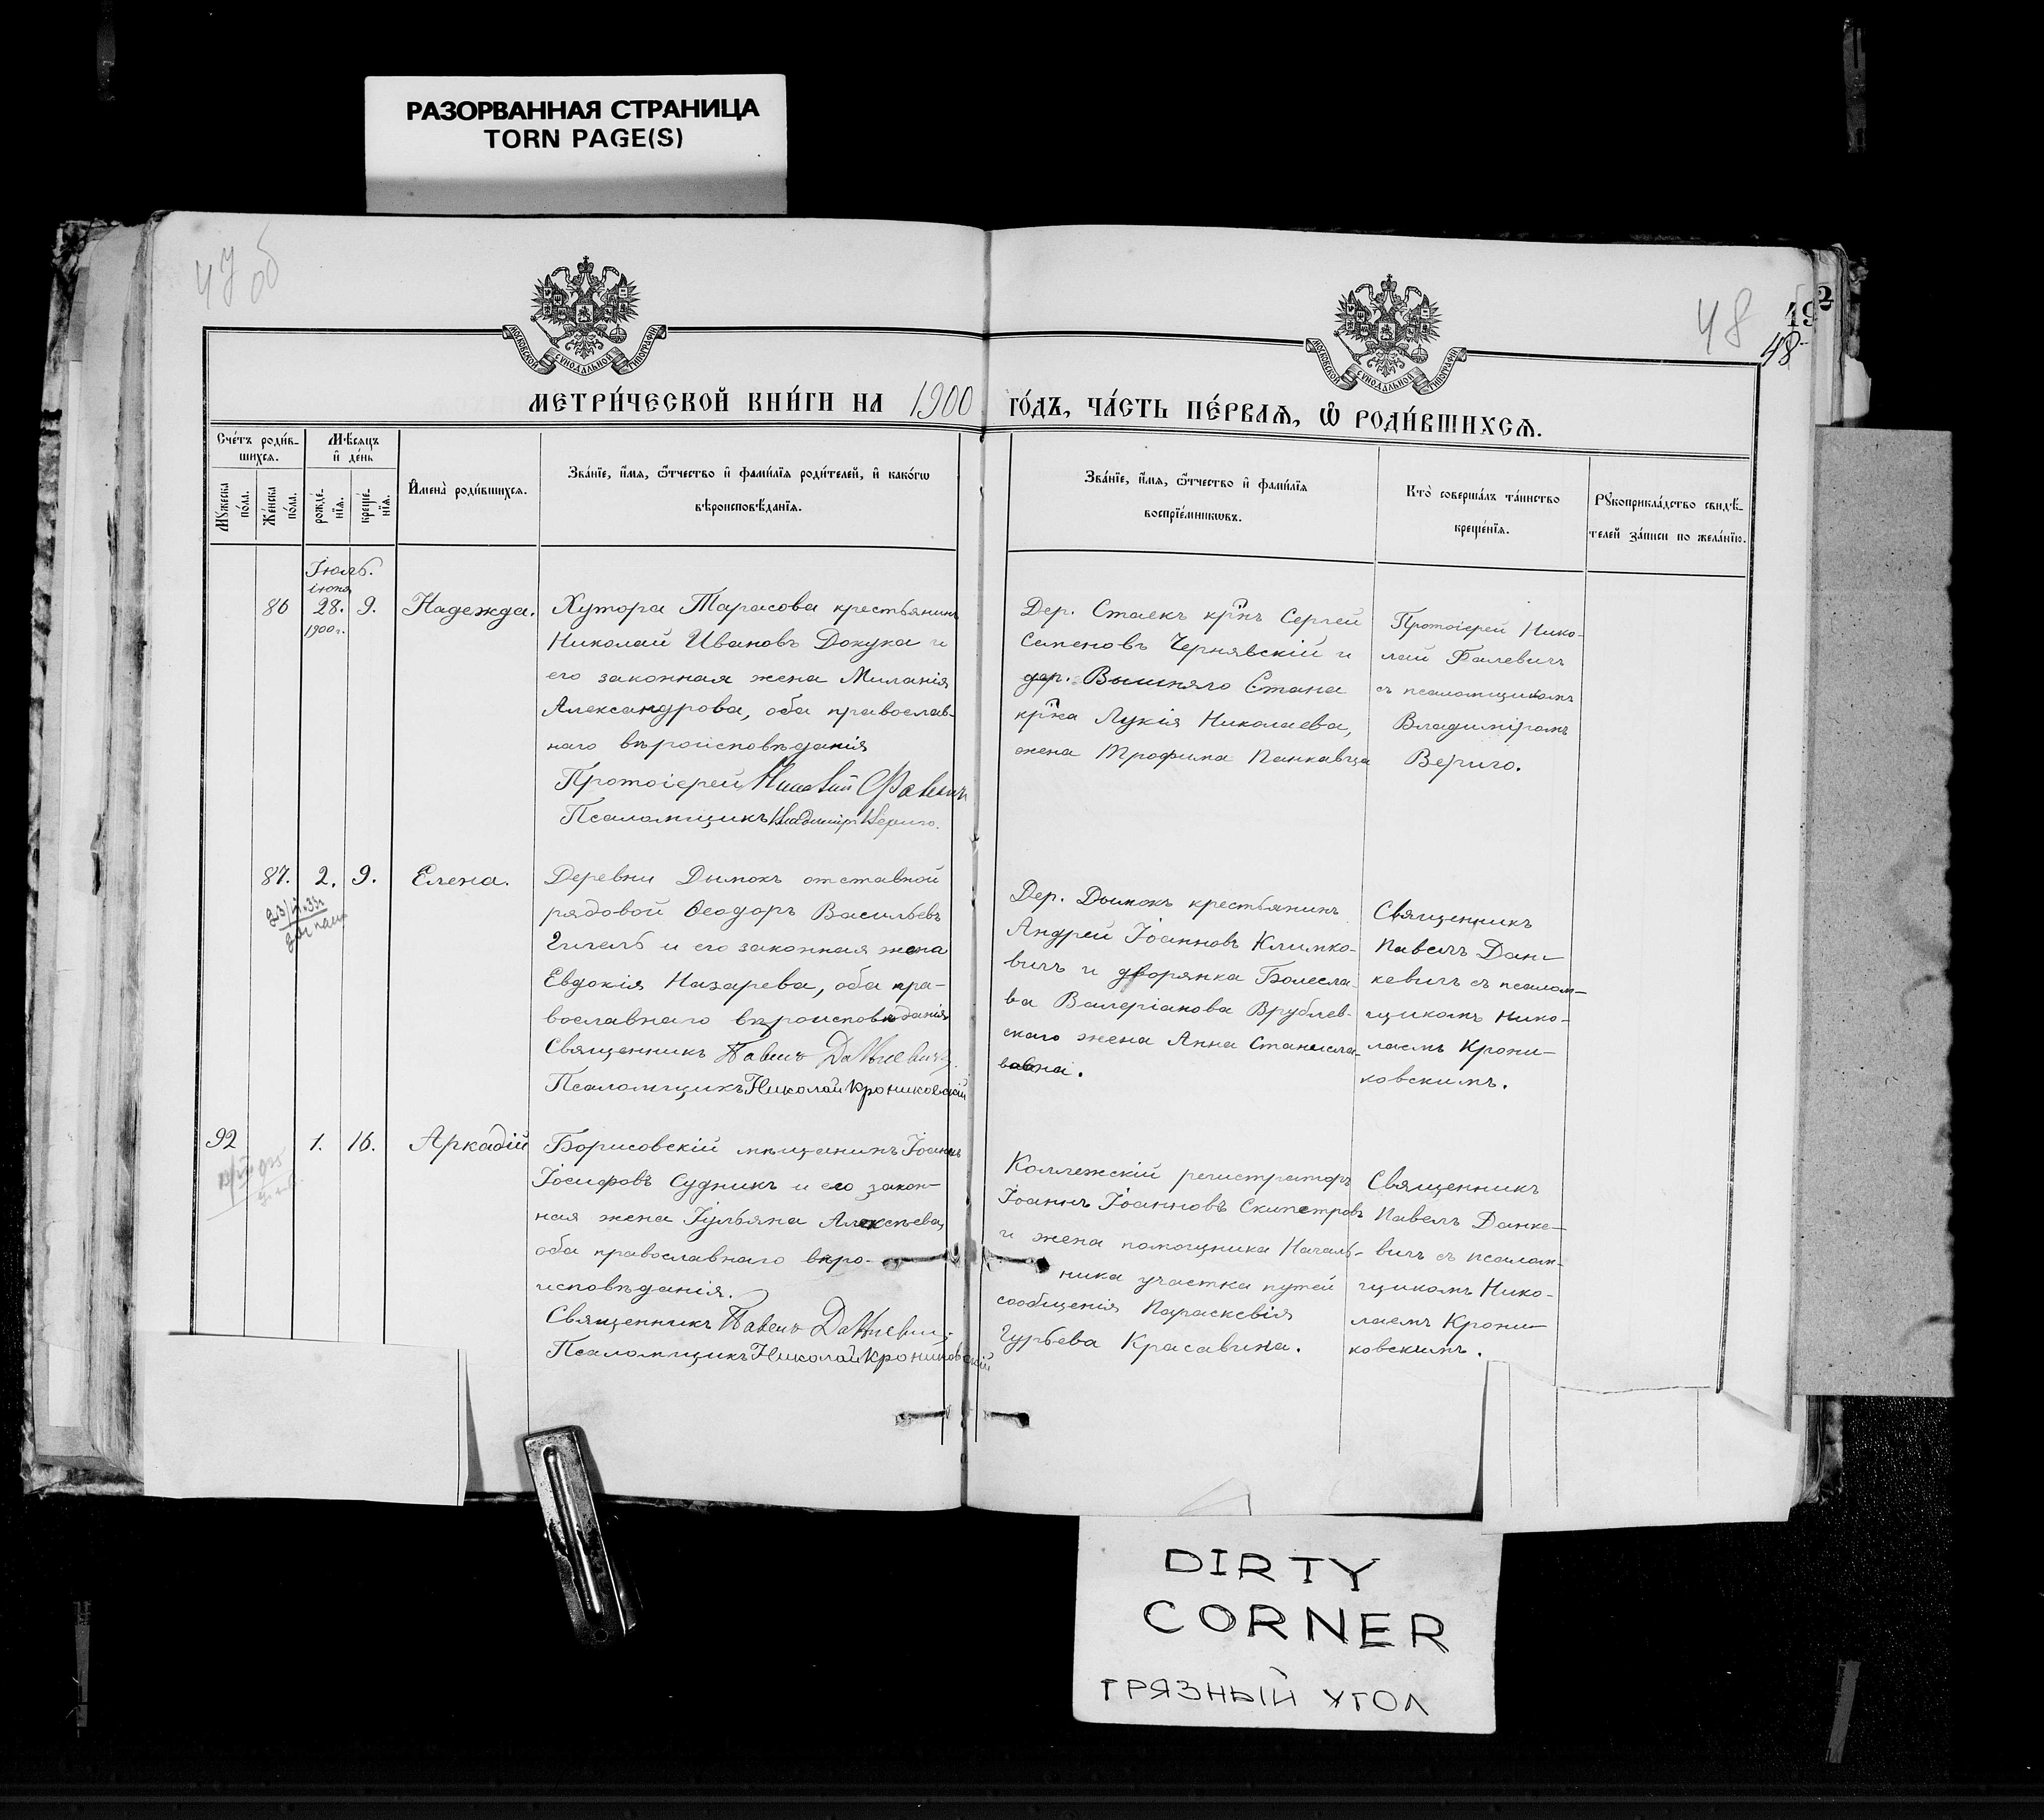 РАЗОРВАННАЯ СТРАНИЦА
TORN PAGE(S)
47 об
48
48
МОСКОВСКОЙ СѴНОДАЛЬНОЙ ТИПОГРАФІИ
МОСКОВСКОЙ СѴНОДАЛЬНОЙ ТИПОГРАФІИ
МЕТРИ́ЧЕСКОЙ КНИ́ГИ НА 1900 ГО́ДЪ, ЧА́СТЬ ПЕ́РВАѦ, Ѡ҆ РОДИ́ВШИХСѦ.
Сче́тъ роди́в-
шихсѧ.
Мꙋжеска по́ла.
Же́нска по́ла.
Мѣ́сѧцъ и҆ де́нь
рожде́-
нїѧ.
креще́-
нїѧ.
И҆мена̀ роди́вшихсѧ.
Зва́нїе, и҆́мѧ, ѻ҆́тчество и҆ фами́лїѧ роди́телей, и҆ како́гѡ
вѣроисповѣ́данїѧ.
Зва́нїе, и҆́мѧ, ѻ҆́тчество и҆ фами́лїѧ
воспрїе́мникѡвъ.
Кто̀ соверша́лъ та́инство
креще́нїѧ.
Рꙋкоприкла́дство свидѣ́-
телей за́писи по жела́нїю.
Іюль.
іюня
86 28. 9. Надежда.
1900 г.
Хутора Тарасова крестьянинъ
Николай Ивановъ Докука и
его законная жена Миланія
Александрова, оба православ-
наго вѣроисповѣданія
Протоіерей Николай Фалевичъ
Псаломщикъ Владиміръ Вериго.
Дер. Стаекъ кр-нъ Сергей
Семеновъ Чернявскій и
дер. Вышняго Стана
кр-ка Лукія Николаева,
жена Трофима Панкавца
Протоіерей Нико-
лай Фалевичъ
съ псаломщикомъ
Владиміромъ
Вериго.
87. 2. 9. Елена.
Деревни Дымокъ отставной
рядовой Ѳеодоръ Васильевъ
Гигель и его законная жена
Евдокія Назарева, оба пра-
вославнаго вѣроисповѣданія
Священникъ Павелъ Данкевичъ
Псаломщикъ Николай Крониковскій
Дер. Дымокъ крестьянинъ
Андрей Іоанновъ Климко-
вичъ и дворянка Болесла-
ва Валеріанова Врублев-
скаго жена Анна Станисла-
вовна.
Священникъ
Павелъ Дан-
кевичъ съ псалом-
щикомъ Нико-
лаемъ Крони-
ковскимъ.
92 1. 16. Аркадій
Борисовскій мѣщанинъ Іоаннъ
Іосифовъ Судникъ и его закон-
ная жена Іульяна Алексѣева,
оба православнаго вѣро-
исповѣданія.
Священникъ Павелъ Данкевичъ
Псаломщикъ Николай Крониковскій
Коллежскій регистраторъ
Іоаннъ Іоанновъ Скипетровъ
и жена помощника Началь-
ника участка путей
сообщенія Параскевія
Гурьева Красавина.
Священникъ
Павелъ Данке-
вичъ съ псалом-
щикомъ Нико-
лаемъ Крони-
ковскимъ.
DIRTY
CORNER
ГРЯЗНЫЙ УГОЛ